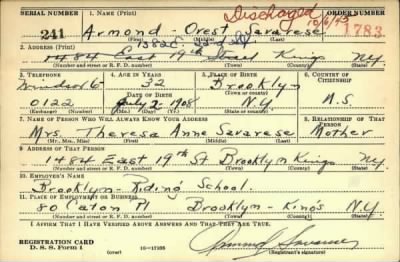 SERIAL NUMBER 1. NAME (Print) Discharged
10/6/45
241 Armond Orest Savarese 1783
(First) (Middle) (Last)
2. ADDRESS (Print)
1484 East 19th Street Kings NY
(Number and street or R. F. D. number) (Town) (County) (State)
3. TELEPHONE 4. AGE IN YEARS 5. PLACE OF BIRTH 6. COUNTRY OF CITIZENSHIP
Windsor 6- 32 Brooklyn
DATE OF BIRTH (Town or county)
0122 July 2 - 1908 N.Y. U.S.
(Exchange) (Number) (Mo.) (Day) (Yr.) (State or country)
7. NAME OF PERSON WHO WILL ALWAYS KNOW YOUR ADDRESS 8. RELATIONSHIP OF THAT PERSON
Mrs. Theresa Anne Savarese Mother
(Mr., Mrs., Miss) (First) (Middle) (Last)
9. ADDRESS OF THAT PERSON
1484 East 19th St Brooklyn Kings NY
(Number and street or R. F. D. number) (Town) (County) (State)
10. EMPLOYER'S NAME
Brooklyn-Riding School.
11. PLACE OF EMPLOYMENT OR BUSINESS
80 Caton Pl Brooklyn - Kings N.Y.
(Number and street or R. F. D. number) (Town) (County) (State)
I AFFIRM THAT I HAVE VERIFIED ABOVE ANSWERS AND THAT THEY ARE TRUE.
REGISTRATION CARD
D. S. S. Form 1 (over) 16—17105
(Registrant's signature)